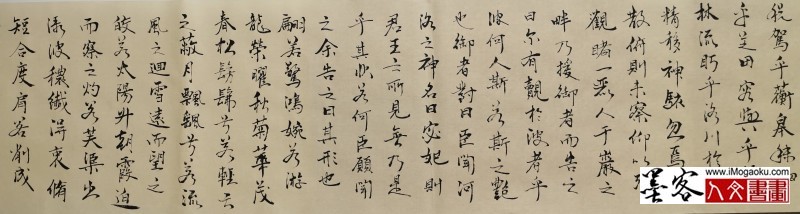 税駕乎蘅皋秣
乎芝田容與乎
林流眄乎洛川於
精移神駭忽焉
散俯則未察仰以殊
觀睹一麗人于巖之
畔乃援御者而告之
曰爾有覿於彼者乎
彼何人斯若斯之艷
也御者對曰臣聞河
洛之神名曰宓妃則
君王之所見無乃是
乎其狀若何臣願聞
之余告之曰其形也
翩若驚鴻婉若遊
龍榮曜秋菊華茂
春松髣髴兮若輕雲
之蔽月飄颻兮若流
風之迴雪遠而望之
皎若太陽升朝霞迫
而察之灼若芙渠出
淥波穠纖得衷脩
短合度肩若削成
墨客
www.iMogaoku.com
人文書畫